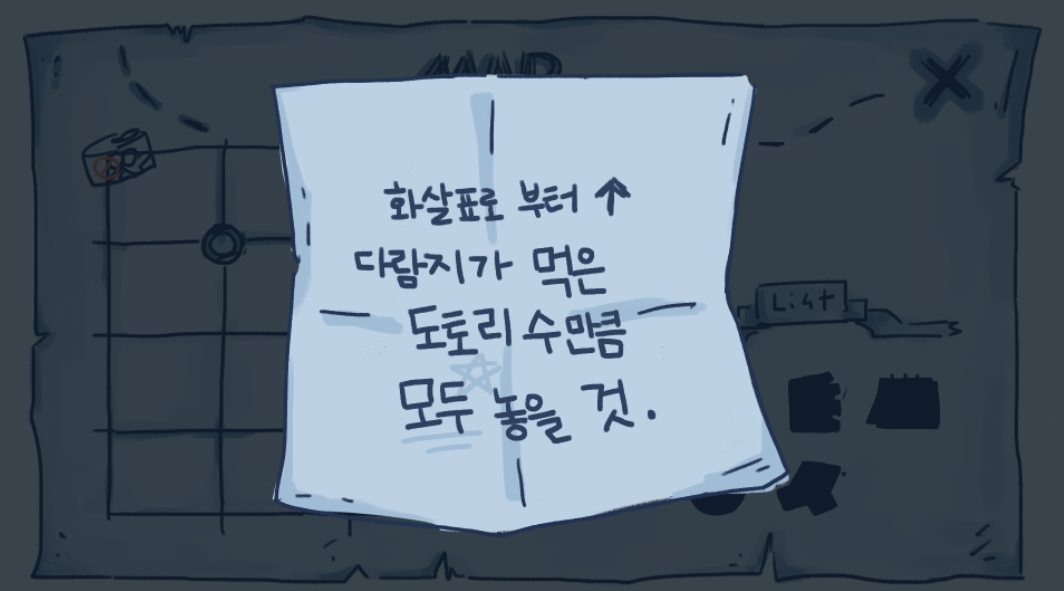 MAP
화살표로 부터 ↑
다람지가 먹은
도토리 수만큼
모두 놓을 것.
List